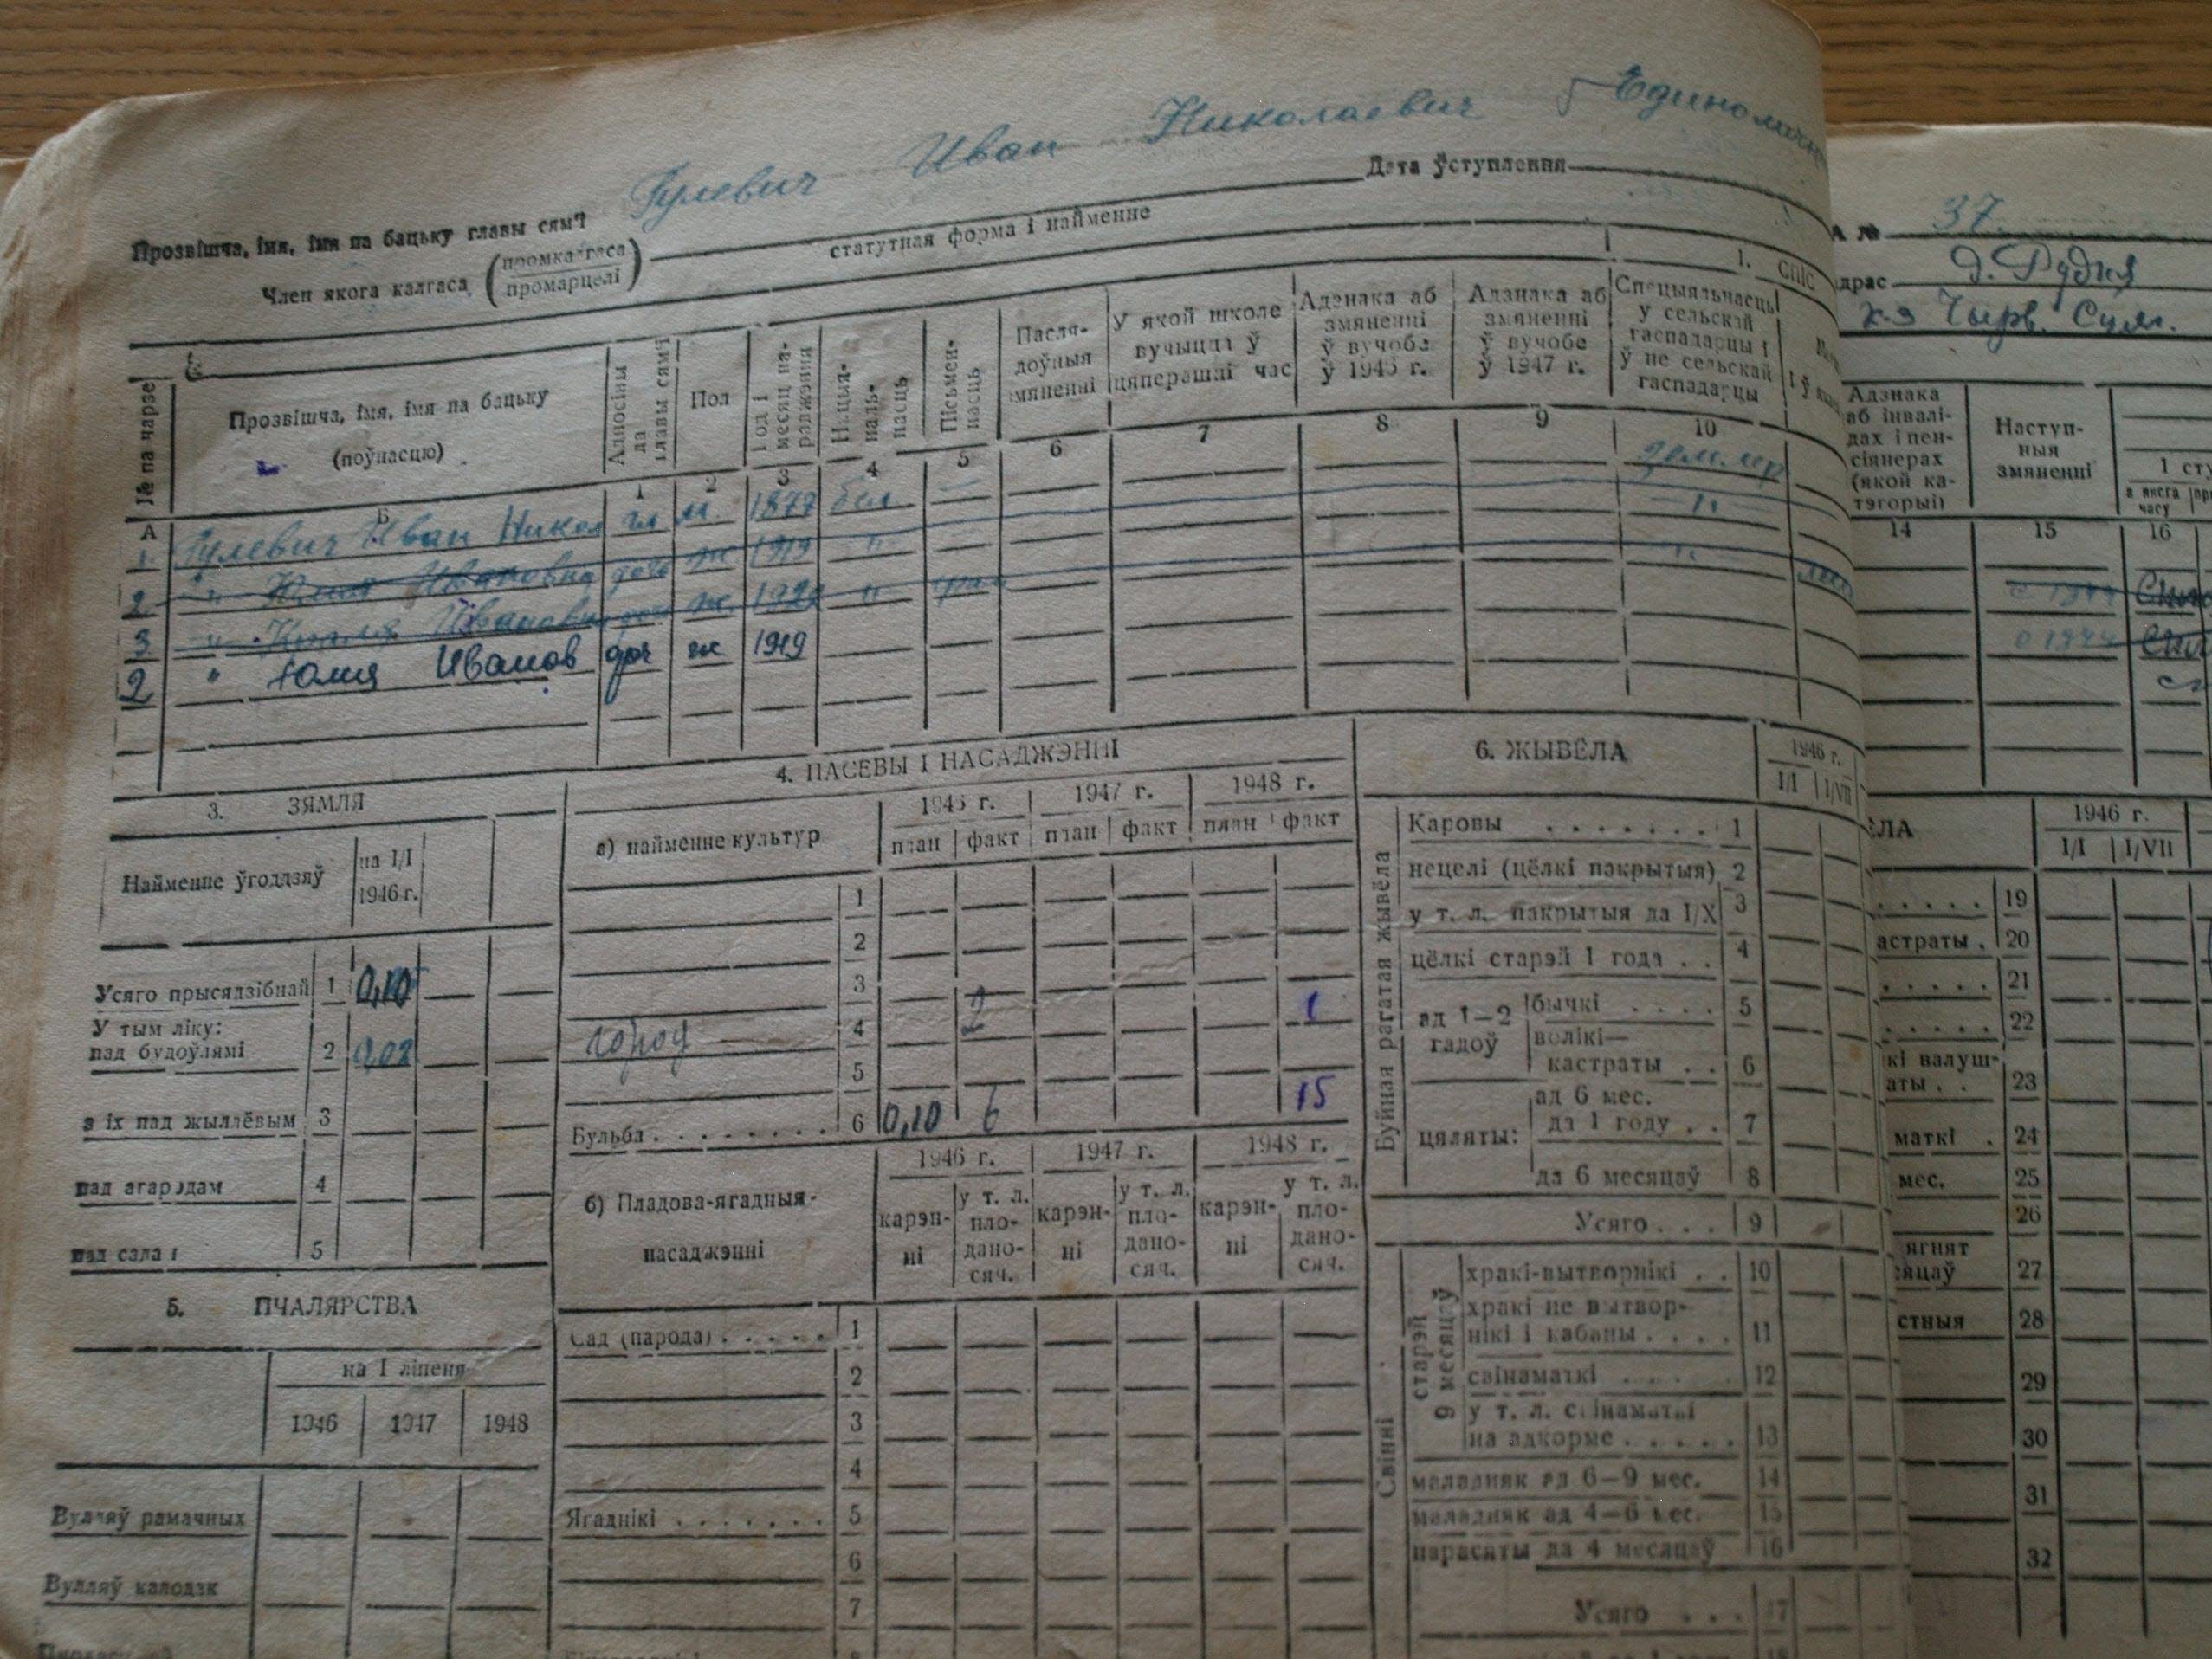 Гулевич Иван Николаевич Единоличн
Прозвішча, імя, імя па бацьку главы сям'і
Дата ўступлення
Член якога калгаса (промкалгаса промарцелі)
статутная форма і найменне
1. СПІС
№ па чарзе
Прозвішча, імя, імя па бацьку
(поўнасцю)
Адносіны да главы сям'і
Пол
Год і месяц нараджэння
Нацыя-наль-насць
Пісьмен-насць
Пасля-
доўныя
змяненні
У якой школе
вучыцца ў
цяперашні час
Адзнака аб
змяненні
ў вучобе
ў 1946 г.
Адзнака аб
змяненні
ў вучобе
ў 1947 г.
Спецыяльнасць
у сельскай
гаспадарцы і
ў не сельскай
гаспадарцы
А Б 1 2 3 4 5 6 7 8 9 10
1. Гулевич Иван Никол гл м. 1877 бел —
2 " Юлия Ивановна дочь ж 1919 "
3 " Ивановна дочь ж. "
2 " Юлия Иванов доч ж 1919
3. ЗЯМЛЯ
Найменне ўгоддзяў
на I/I
1946 г.
Усяго прысядзібнай 1 0,10
У тым ліку:
пад будоўлямі 2 0,02
з іх пад жыллёвым 3
пад агародам 4
пад садам 5
5. ПЧАЛЯРСТВА
на 1 ліпеня
1946 1947 1948
Вулляў рамачных
Вулляў калодзк
4. ПАСЕВЫ І НАСАДЖЭННІ
а) найменне культур
1946 г. 1947 г. 1948 г.
план факт план факт план факт
1
2
3
город 4 2 1
5
Бульба 6 0,10 6 15
б) Пладова-ягадныя
насаджэнні
1946 г. 1947 г. 1948 г.
карэн-
ні
у т. л.
пло-
дано-
сяч.
карэн-
ні
у т. л.
пло-
дано-
сяч.
карэн-
ні
у т. л.
пло-
дано-
сяч.
Сад (парода) 1
2
3
4
Ягаднікі 5
6
7
8
6. ЖЫВЁЛА
1946 г.
I/I I/VII
Буйная рагатая жывёла
Каровы 1
нецелі (цёлкі пакрытыя) 2
у т. л. пакрытыя да I/X 3
цёлкі старэй 1 года 4
ад 1—2
гадоў
бычкі 5
волікі—
кастраты 6
цяляты:
ад 6 мес.
да 1 году 7
да 6 месяцаў 8
Усяго 9
Свінні
старэй
9 месяцаў
хракі-вытворнікі 10
хракі не вытвор-
нікі і кабаны 11
свінаматкі 12
у т. л. свінаматкі
на адкорме 13
маладняк ад 6—9 мес. 14
маладняк ад 4—6 мес. 15
парасяты да 4 месяцаў 16
Усяго 17
18
37.
драс д. Рудня
к-з Чырв. Сцяг.
Адзнака
аб інвалі-
дах і пен-
сіянерах
(якой ка-
тэгорыі)
Наступ-
ныя
змяненні
14 15 16
ЁЛА
1946 г.
I/I I/VII
19
астраты . 20
21
22
кі валуш-
аты . . 23
маткі . 24
мес. 25
26
ягнят
сяцаў 27
стныя 28
29
30
31
32